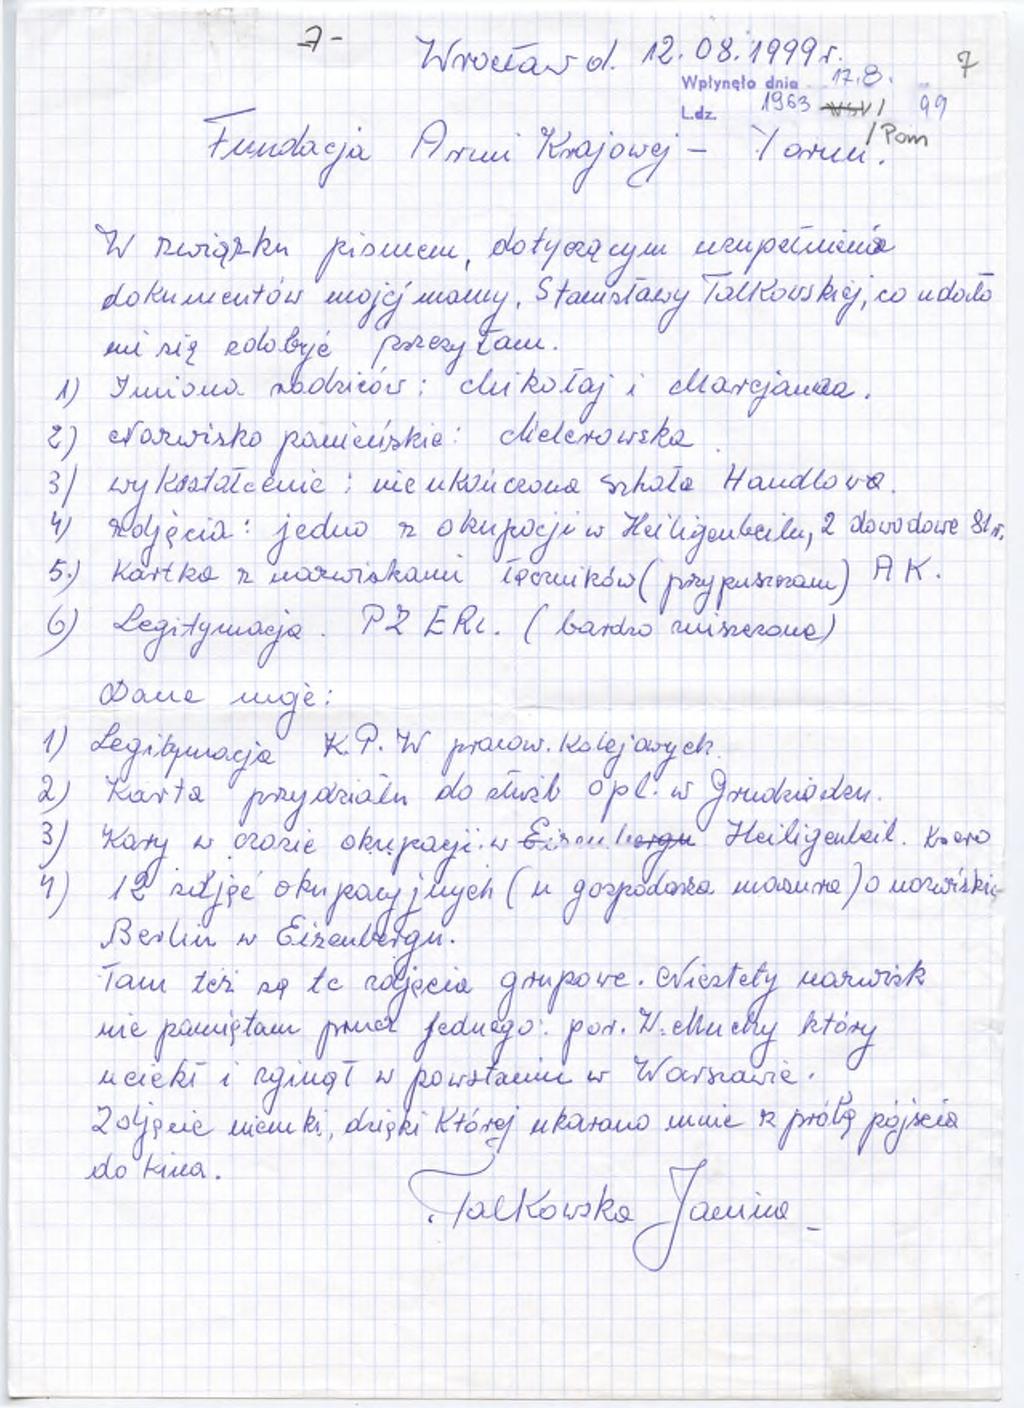 -7-
Wrocław d. 12.08.1999r.
7
Wpłynęło dnia 17.8.
L.dz. 1963 99
/Pom
Fundacja Armi Krajowej – Toruń.
W związku pismem, dotyczącym uzupełnienia
dokumentów mojej mamy, Stanisławy Talkowskiej, co udało
mi się zdobyć przesyłam.
1) Imiona rodziców: Mikołaj i Marcjanna.
2) Nazwisko panieńskie: Melerowska
3) wykształcenie: nieukończona szkoła Handlowa.
4) zdjęcia: jedno z okupacji w Heiligenbeilu, 2 dowodowe 81r.
5.) Kartka z nazwiskami łączników (przypuszczam) AK.
6) Legitymacja. PZERI. (bardzo zniszczona)
Dane moje:
1) Legitymacja K.P.W pracow. Kolejowych.
2) Karta przydziału do służb opl. w Grudziądzu.
3) Kary w czasie okupacji w Eizenbergu Heiligenbeil. Ksero
4) 12 zdjęć okupacyjnych (u gospodarza mazura) o nazwisku
Berlin w Eizenbergu.
Tam też są te zdjęcia grupowe. Niestety nazwisk
nie pamiętam prócz jednego: por. W. Muchy który
uciekł i zginął w powstaniu w Warszawie.
Zdjęcie niemki, dzięki której ukarano mnie z próbę pójścia
do kina.
Talkowska Janina